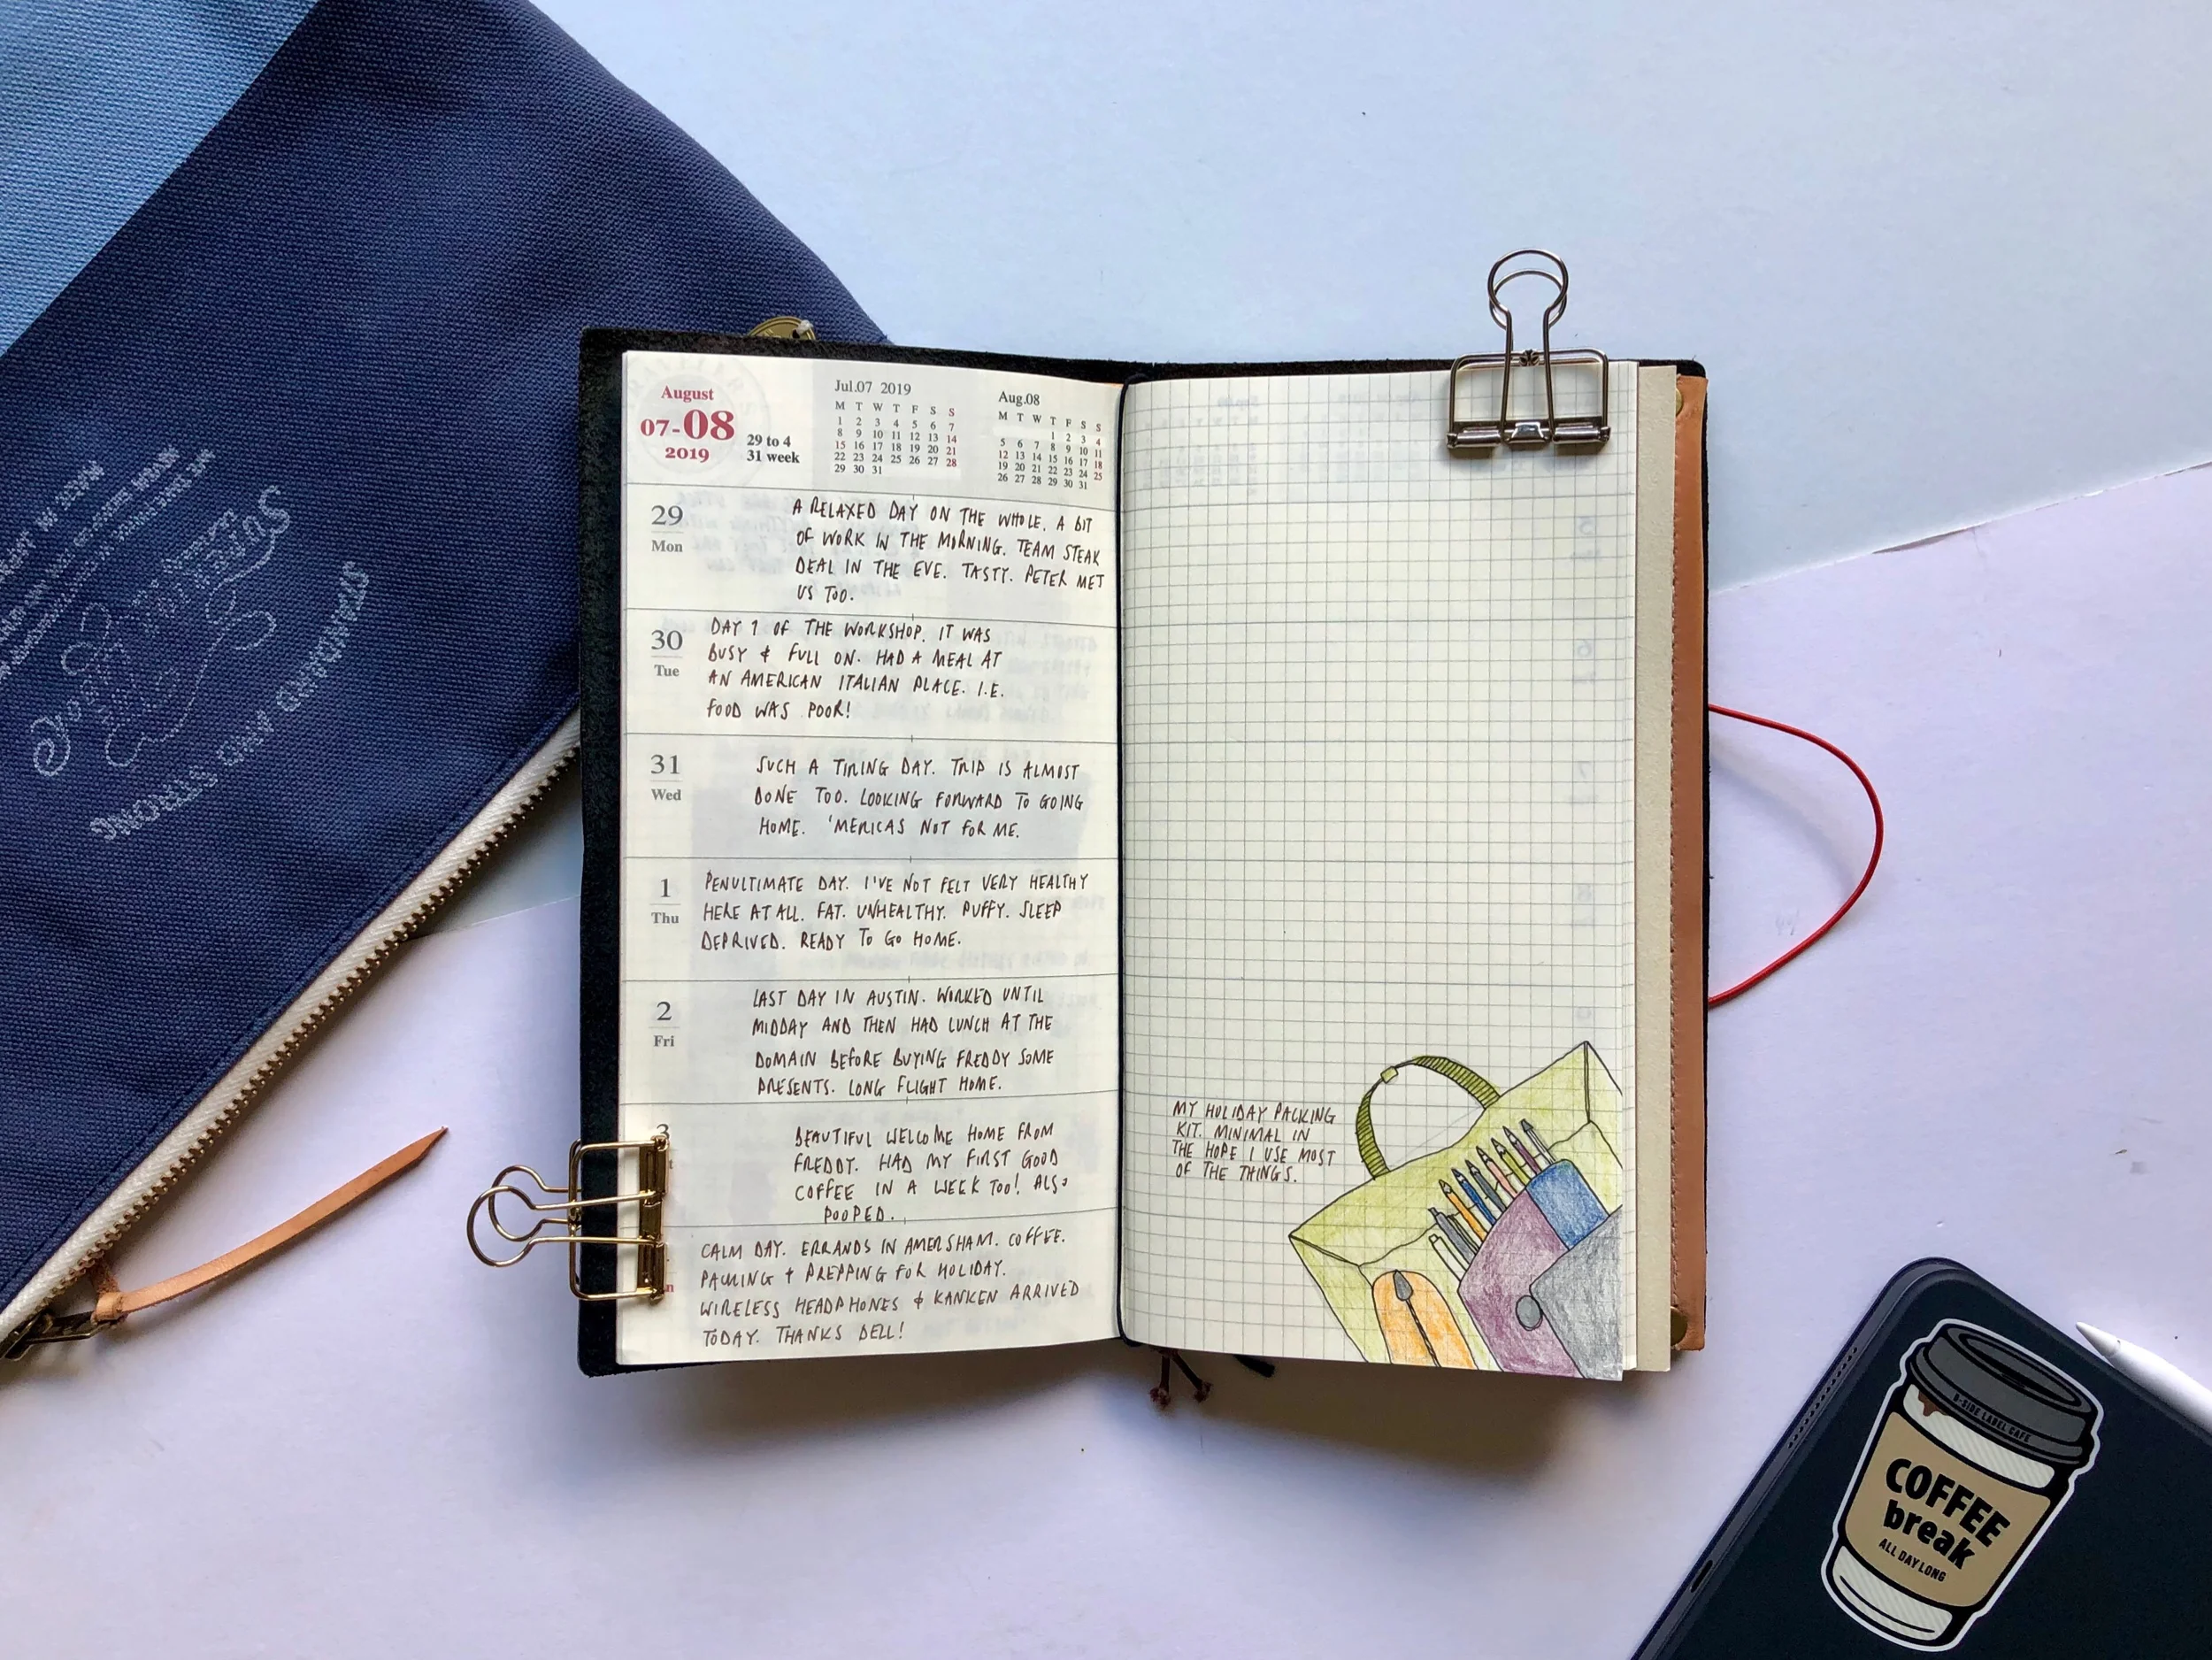 August
07-08
2019
29 to 4
31 week
Jul.07 2019
M T W T F S S
1 2 3 4 5 6 7
8 9 10 11 12 13 14
15 16 17 18 19 20 21
22 23 24 25 26 27 28
29 30 31
Aug.08
M T W T F S S
1 2 3 4
5 6 7 8 9 10 11
12 13 14 15 16 17 18
19 20 21 22 23 24 25
26 27 28 29 30 31
29
Mon
A RELAXED DAY ON THE WHOLE. A BIT
OF WORK IN THE MORNING. TEAM STEAK
DEAL IN THE EVE. TASTY. PETER MET
US TOO.
30
Tue
DAY 1 OF THE WORKSHOP. IT WAS
BUSY & FULL ON. HAD A MEAL AT
AN AMERICAN ITALIAN PLACE. I.E.
FOOD WAS POOR!
31
Wed
SUCH A TIRING DAY. TRIP IS ALMOST
DONE TOO. LOOKING FORWARD TO GOING
HOME. 'MERICAS NOT FOR ME.
1
Thu
PENULTIMATE DAY. I'VE NOT FELT VERY HEALTHY
HERE AT ALL. FAT. UNHEALTHY. PUFFY. SLEEP
DEPRIVED. READY TO GO HOME.
2
Fri
LAST DAY IN AUSTIN. WORKED UNTIL
MIDDAY AND THEN HAD LUNCH AT THE
DOMAIN BEFORE BUYING FREDDY SOME
PRESENTS. LONG FLIGHT HOME.
3
BEAUTIFUL WELCOME HOME FROM
FREDDY. HAD MY FIRST GOOD
COFFEE IN A WEEK TOO! ALSO
POOPED.
CALM DAY. ERRANDS IN AMERSHAM. COFFEE.
PACKING + PREPPING FOR HOLIDAY.
WIRELESS HEADPHONES & KANKEN ARRIVED
TODAY. THANKS DELL!
MY HOLIDAY PACKING
KIT. MINIMAL IN
THE HOPE I USE MOST
OF THE THINGS.
STANDARD AND STRONG
B-SIDE LABEL CAFE
COFFEE
break
ALL DAY LONG